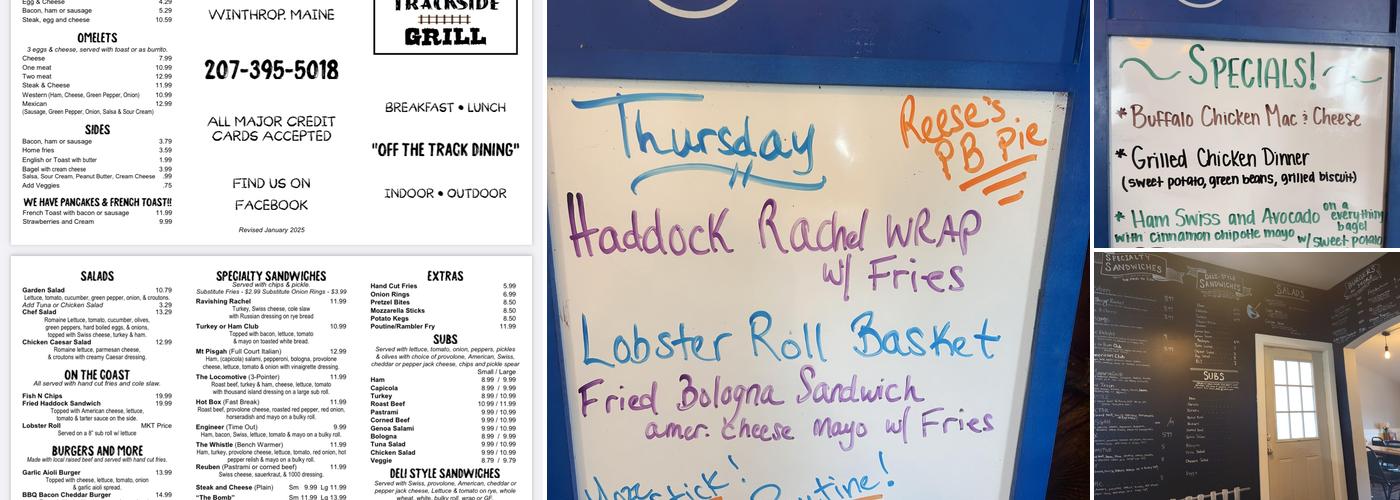 Egg & Cheese 4.29
Bacon, ham or sausage 5.29
Steak, egg and cheese 10.59
OMELETS
3 eggs & cheese, served with toast or as burrito.
Cheese 7.99
One meat 10.99
Two meat 12.99
Steak & Cheese 11.99
Western (Ham, Cheese, Green Pepper, Onion) 10.99
Mexican 12.99
(Sausage, Green Pepper, Onion, Salsa & Sour Cream)
SIDES
Bacon, ham or sausage 3.79
Home fries 3.59
English or Toast with butter 1.99
Bagel with cream cheese 3.99
Salsa, Sour Cream, Peanut Butter, Cream Cheese .99
Add Veggies .75
WE HAVE PANCAKES & FRENCH TOAST!!
French Toast with bacon or sausage 11.99
Strawberries and Cream 9.99
WINTHROP, MAINE
207-395-5018
ALL MAJOR CREDIT
CARDS ACCEPTED
FIND US ON
FACEBOOK
Revised January 2025
TRACKSIDE
GRILL
BREAKFAST • LUNCH
"OFF THE TRACK DINING"
INDOOR • OUTDOOR
SALADS
Garden Salad 10.79
Lettuce, tomato, cucumber, green pepper, onion, & croutons.
Add Tuna or Chicken Salad 3.29
Chef Salad 13.29
Romaine Lettuce, tomato, cucumber, olives,
green peppers, hard boiled eggs, & onions,
topped with Swiss cheese, turkey & ham.
Chicken Caesar Salad 12.99
Romaine lettuce, parmesan cheese,
& croutons with creamy Caesar dressing.
ON THE COAST
All served with hand cut fries and cole slaw.
Fish N Chips 19.99
Fried Haddock Sandwich 19.99
Topped with American cheese, lettuce,
tomato & tarter sauce on the side.
Lobster Roll MKT Price
Served on a 8" sub roll w/ lettuce
BURGERS AND MORE
Made with local raised beef and served with hand cut fries.
Garlic Aioli Burger 13.99
Topped with cheese, lettuce, tomato, onion
& garlic aioli spread.
BBQ Bacon Cheddar Burger 14.99
SPECIALTY SANDWICHES
Served with chips & pickle.
Substitute Fries - $2.99 Substitute Onion Rings - $3.99
Ravishing Rachel 11.99
Turkey, Swiss cheese, cole slaw
with Russian dressing on rye bread
Turkey or Ham Club 10.99
Topped with bacon, lettuce, tomato
& mayo on toasted white bread.
Mt Pisgah (Full Court Italian) 12.99
Ham, (capicola) salami, pepperoni, bologna, provolone
cheese, lettuce, tomato & onion with vinaigrette dressing.
The Locomotive (3-Pointer) 11.99
Roast beef, turkey & ham, cheese, lettuce, tomato
with thousand island dressing on a large sub roll.
Hot Box (Fast Break) 11.99
Roast beef, provolone cheese, roasted red pepper, red onion,
horseradish and mayo on a bulky roll.
Engineer (Time Out) 9.99
Ham, bacon, Swiss, lettuce, tomato & mayo on a bulky roll.
The Whistle (Bench Warmer) 11.99
Ham, turkey, provolish cheese, lettuce, tomato, red onion, hot
pepper relish & mayo on a bulky roll.
Reuben (Pastrami or corned beef) 11.99
Swiss cheese, sauerkraut, & 1000 dressing.
Steak and Cheese (Plain) Sm 9.99 Lg 11.99
"The Bomb" Sm 11.99 Lg 13.99
EXTRAS
Hand Cut Fries 5.99
Onion Rings 6.99
Pretzel Bites 8.50
Mozzarella Sticks 8.50
Potato Kegs 8.50
Poutine/Rambler Fry 11.99
SUBS
Served with lettuce, tomato, onion, peppers, pickles
& olives with choice of provolone, American, Swiss,
cheddar or pepper jack cheese, chips and pickle spear
Small / Large
Ham 8.99 / 9.99
Capicola 8.99 / 9.99
Turkey 8.99 / 10.99
Roast Beef 10.99 / 11.99
Pastrami 9.99 / 10.99
Corned Beef 9.99 / 10.99
Genoa Salami 9.99 / 10.99
Bologna 8.99 / 9.99
Tuna Salad 9.99 / 10.99
Chicken Salad 9.99 / 10.99
Veggie 8.79 / 9.79
DELI STYLE SANDWICHES
Served with Swiss, provolone, American, cheddar or
pepper jack cheese, Lettuce & tomato on rye, whole
wheat, white, bulky roll, wrap or GF.
Thursday
Reese's
PB Pie
Haddock Rachel WRAP
w/ Fries
Lobster Roll Basket
Fried Bologna Sandwich
amer. cheese mayo w/ Fries
SPECIALS!
* Buffalo Chicken Mac & Cheese
* Grilled Chicken Dinner
(sweet potato, green beans, grilled biscuit)
* Ham Swiss and Avocado on a everything bagel
with cinnamon chipotle mayo w/ sweet potato
SPECIALTY
SANDWICHES
DELI-STYLE
SANDWICHES
SALADS
BURGERS
SUBS